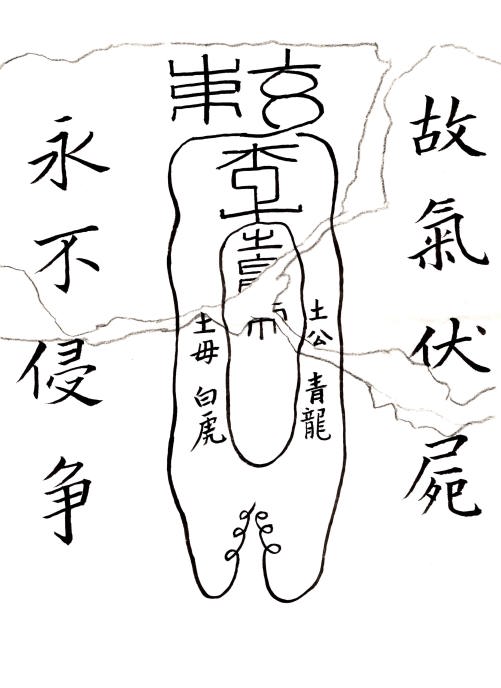 故氣伏屍
土公 青龍
土母 白虎
永不侵争